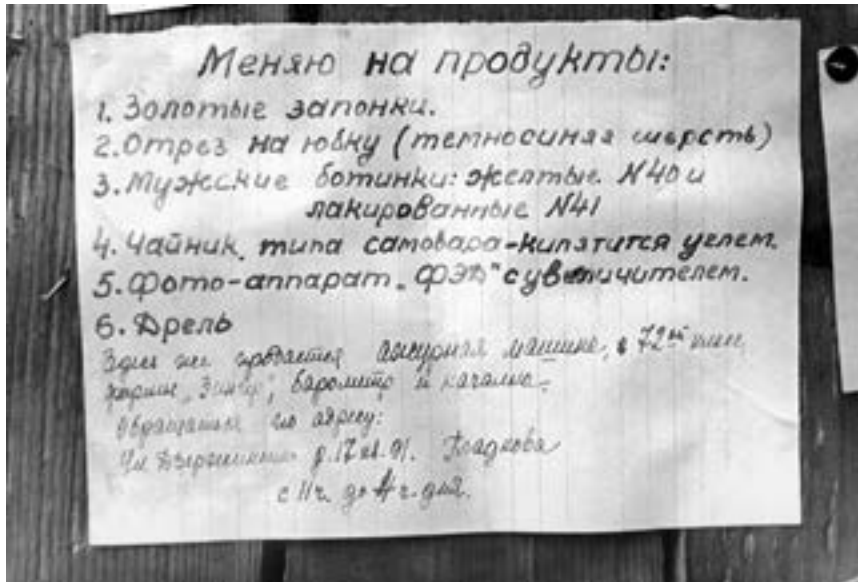 Меняю на продукты:
1. Золотые запонки.
2. Отрез на юбку (темносиняя шерсть)
3. Мужские ботинки: желтые N40 и
лакированные N41
4. Чайник типа самовара-кипятится углем.
5. Фото-аппарат „ФЭД" с увеличителем.
6. Дрель
Здесь же продается ажурная машина, в 72
фирмы „Зингер", барометр и качалка.
Обращаться по адресу:
Ул. Дзержинского д. 17 кв. 91.
с 11 ч. до 4 ч. дня.